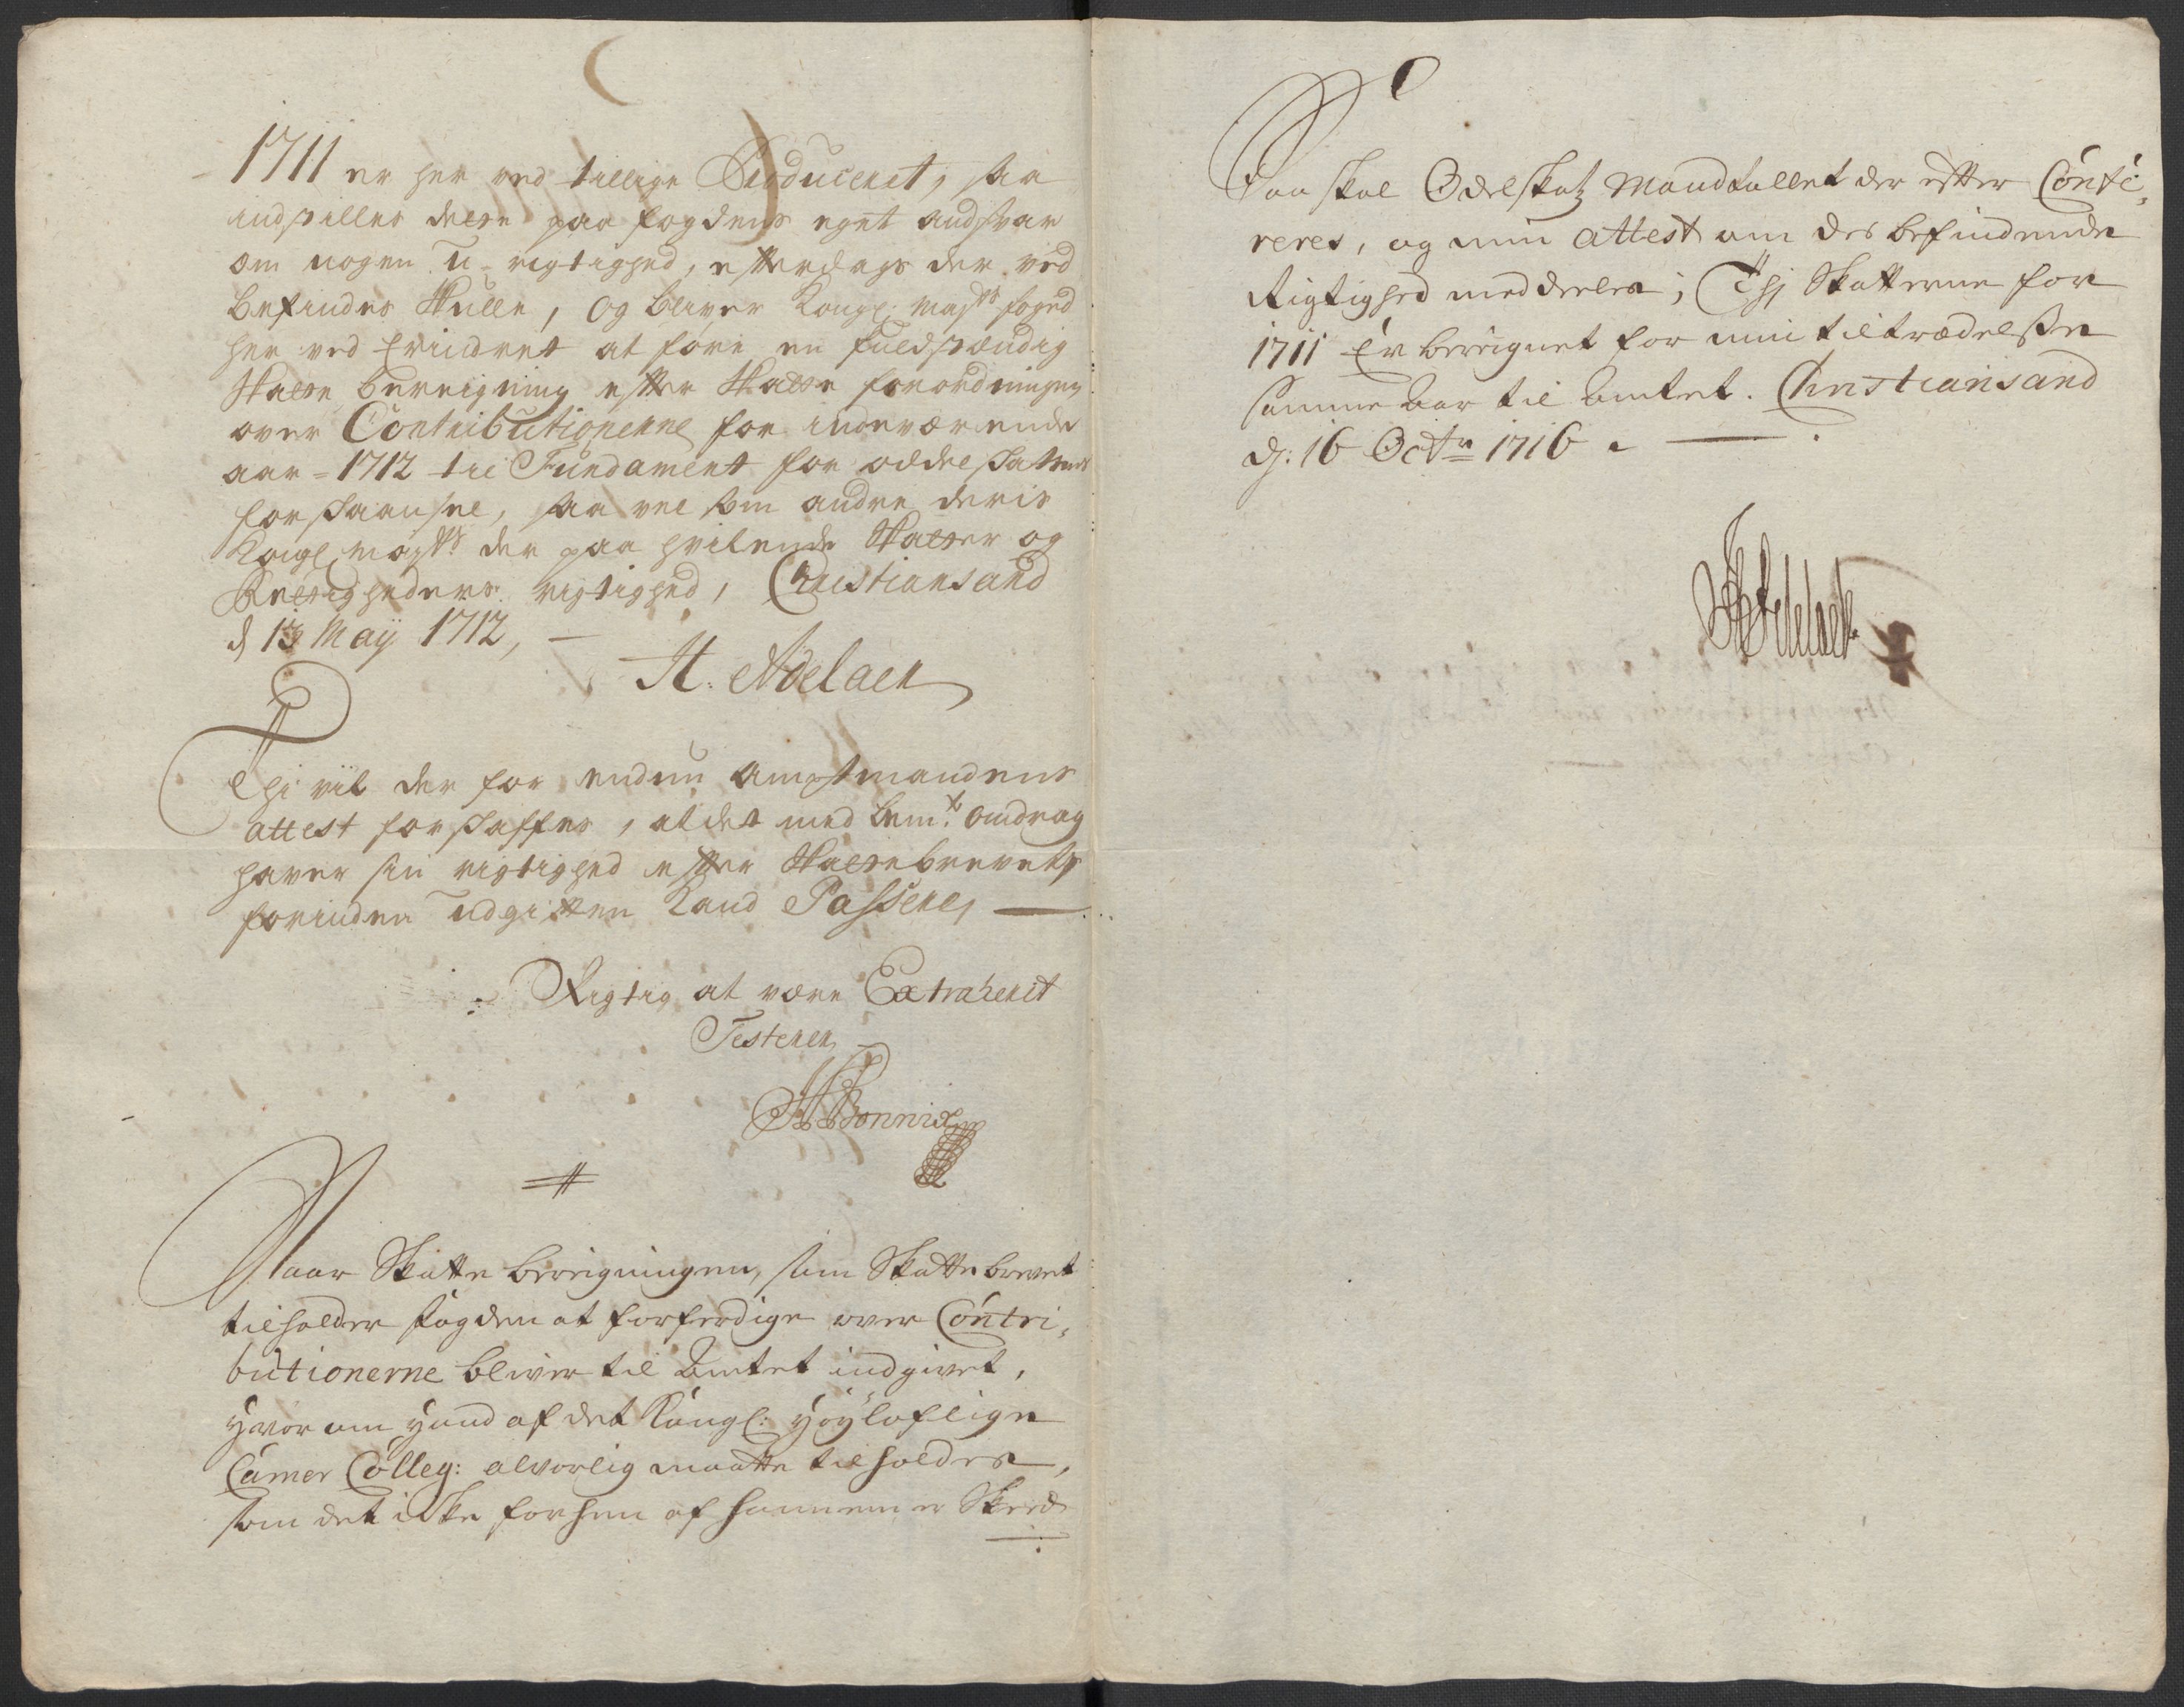 1711 er her ved tillige Producerit, saa
indstilles dette paa fogdens eget andsvar
om nogen U-rigtighed, efterdags der ved
befindes skulle, og bliver Kongl: Maj:ts foged
her ved Erindret at føre en fuldstændig
Skatte bereigning efter Skatte forordningen
over Contributionerne for indeværende
aar = 1712 til Fundament for oddelskattens
forstaaelse, saa vel som andre deris
Kongl. Maj:ts der paa hvilende Skatter og
Rettigheders rigtighed, Christiansand
d 13 Maij 1712, —
H. Adelaer
Thi vil der for endnu Amptmandens
attest forskaffes, at det med bem:te omdrag
haver sin rigtighed efter Skattebrevets
forinden udgiften kand Passere, —
Rigtig at være Extraherit
Testerer
HBonnix
Naar Skatte bereigningen, som Skattebrevet
tilholder fogden at forferdige over Contri,
butionerne bliver til Amtet indgivet,
hvor om hand af det Kongl: høyloflige
Camer Colleg: alvorlig maatte tilholdes,
som det icke forhen af hannem er Skeed
Saa skal Odelskatz Mandtallet der efter Conti,
reres, og min attest om des befindende
Rigtighed meddeeles; Thj Skatterne for
1711 Er bereignet for min tiltrædelsse
samme aar til Amtet. Christiansand
dj: 16 Octr 1716.
HAdelaer